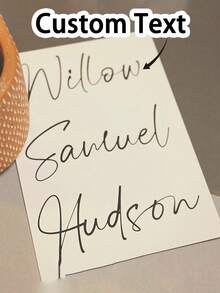 Custom Text
Willow
Samuel
Hudson